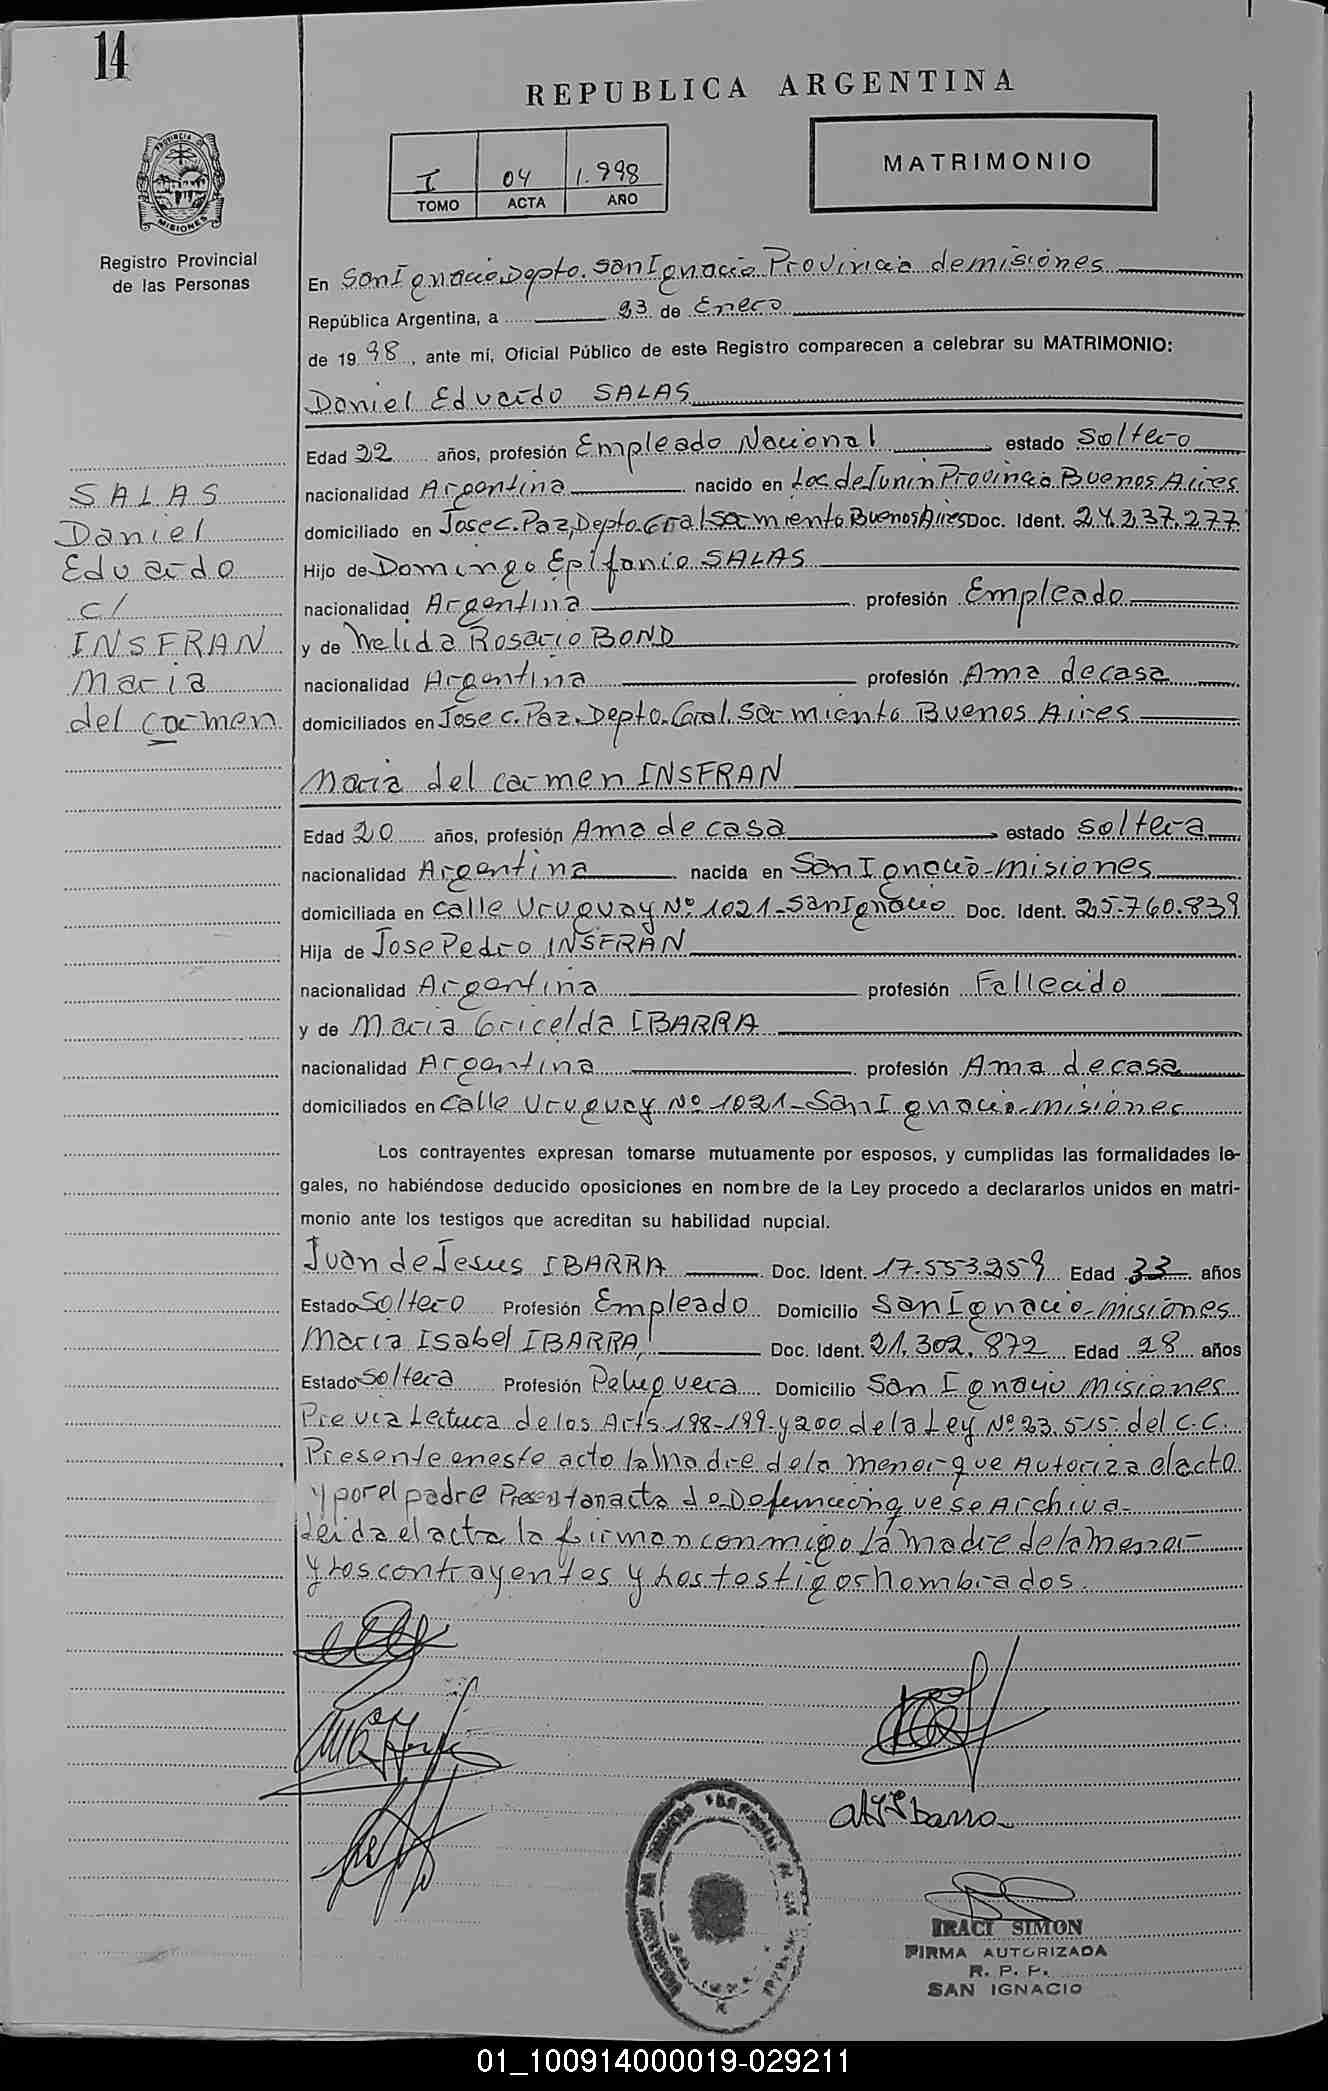 14
REPUBLICA ARGENTINA
I 04 1.998
TOMO ACTA AÑO
MATRIMONIO
PROVINCIA DE MISIONES
Registro Provincial
de las Personas
En San Ignacio, Depto. San Ignacio Provincia de misiones
República Argentina, a 23 de Enero
de 1998, ante mí, Oficial Público de este Registro comparecen a celebrar su MATRIMONIO:
Daniel Eduardo SALAS
Edad 22 años, profesión Empleado Nacional estado Soltero
nacionalidad Argentina nacido en Loc de Junin Provincia Buenos Aires
domiciliado en Jose C. Paz, Depto. Gral Sarmiento Buenos Aires Doc. Ident. 24.237.277
Hijo de Domingo Epifanio SALAS
nacionalidad Argentina profesión Empleado
y de Nelida Rosario BOND
nacionalidad Argentina profesión Ama de casa
domiciliados en Jose C. Paz, Depto. Gral. Sarmiento Buenos Aires
SALAS
Daniel
Eduardo
c/
INSFRAN
Maria
del Carmen
Maria del Carmen INSFRAN
Edad 20 años, profesión Ama de casa estado Soltera
nacionalidad Argentina nacida en San Ignacio-misiones
domiciliada en calle Uruguay Nº 1021-San Ignacio Doc. Ident. 25.760.839
Hija de Jose Pedro INSFRAN
nacionalidad Argentina profesión Fallecido
y de Maria Gricelda IBARRA
nacionalidad Argentina profesión Ama de casa
domiciliados en Calle Uruguay Nº 1021-San Ignacio-misiones
Los contrayentes expresan tomarse mutuamente por esposos, y cumplidas las formalidades le-
gales, no habiéndose deducido oposiciones en nombre de la Ley procedo a declararlos unidos en matri-
monio ante los testigos que acreditan su habilidad nupcial.
Juan de Jesus IBARRA Doc. Ident. 17.553.259 Edad 33 años
Estado Soltero Profesión Empleado Domicilio San Ignacio-misiones
Maria Isabel IBARRA, Doc. Ident. 21.302.872 Edad 28 años
Estado Soltera Profesión Peluquera Domicilio San Ignacio misiones
Previa Lectura de los Arts. 198-199-y 200 de la Ley Nº 23.515- del C.C.
Presente en este acto la madre de la menor que Autoriza el acto
y por el padre Presentan acta de Defuncion que se Archiva-
Leida el acta la firman conmigo la madre de la menor-
y los contrayentes y los testigos nombrados.
IRACI SIMON
FIRMA AUTORIZADA
R. P. P.
SAN IGNACIO
01_100914000019-029211